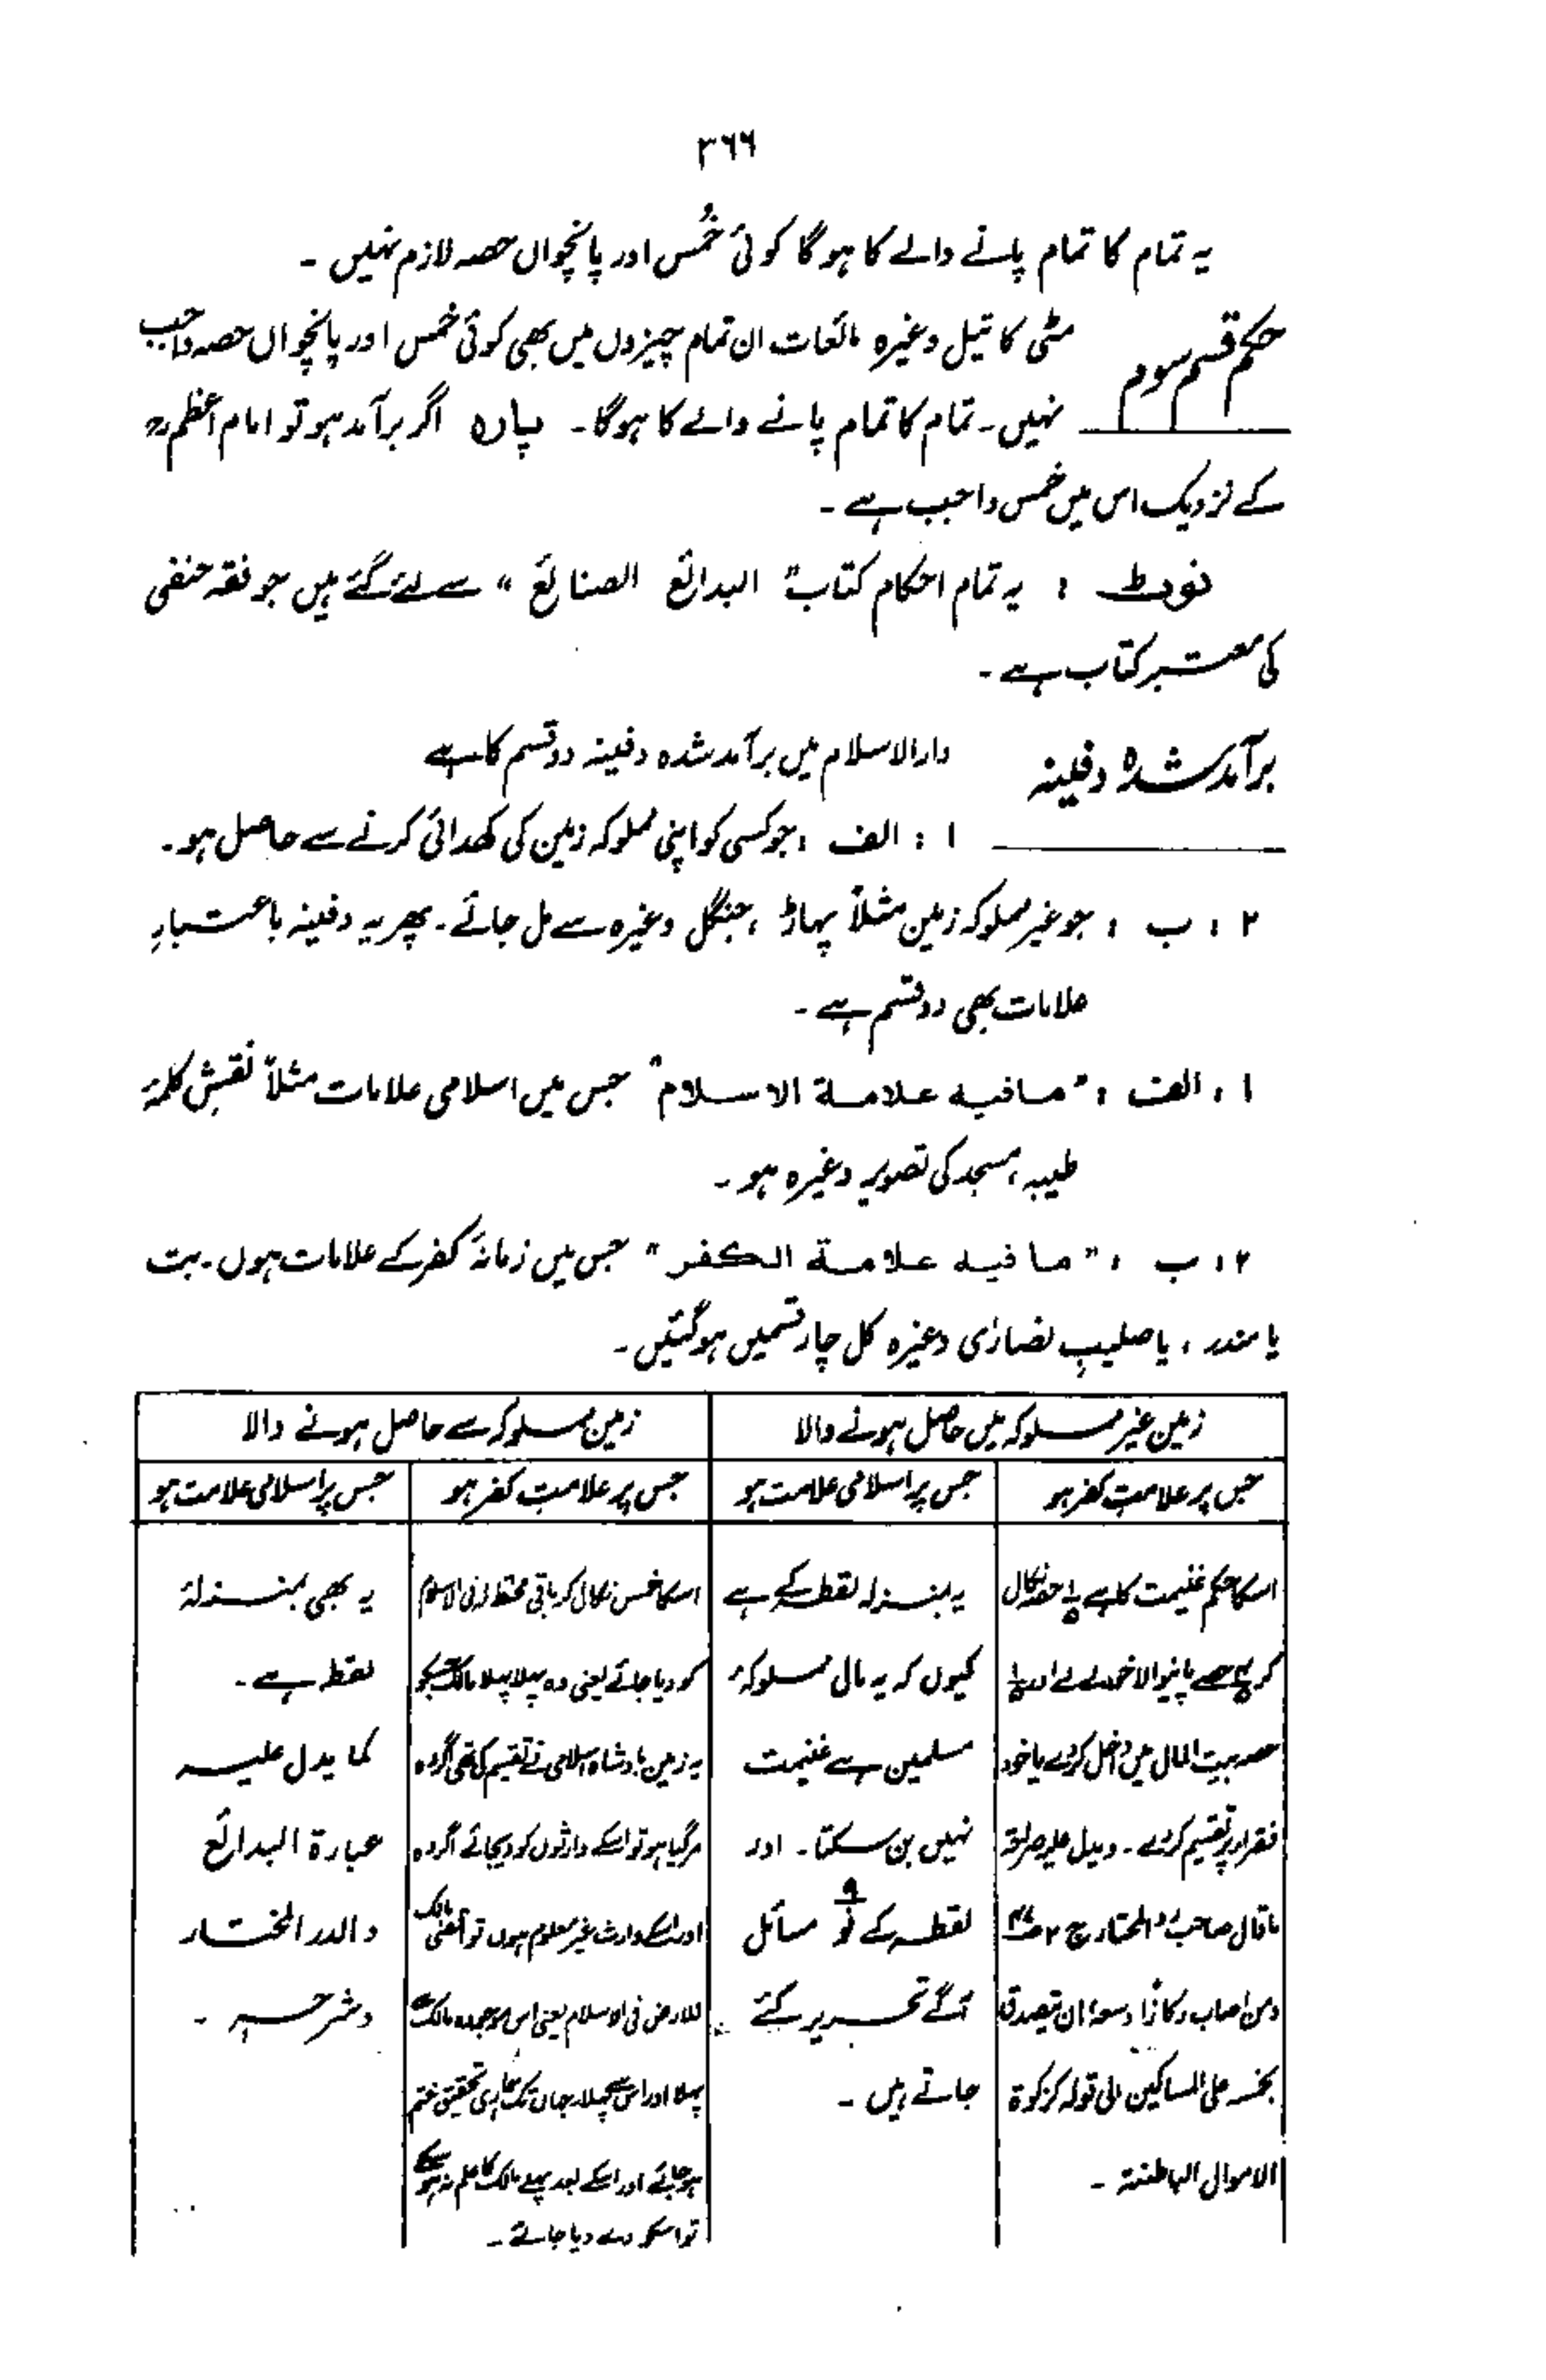 ۳۶۶
یہ تمام کا تمام پانے والے کا ہوگا کوئی خُمس اور پانچواں حصہ لازم نہیں ۔
حکم قسم سوم مٹی کا تیل وغیرہ مائعات ان تمام چیزوں میں بھی کوئی خمس اور پانچواں حصہ واجب
نہیں۔ تمام کا تمام پانے والے کا ہوگا۔ پارہ اگر برآمد ہو تو امام اعظمؒ
کے نزدیک اس میں خمس واجب ہے ۔
نوٹ : یہ تمام احکام کتاب " البدائع الصنائع " سے لئے گئے ہیں جو فقہ حنفی
کی معتبر کتاب ہے ۔
برآمد شدہ دفینہ دارالاسلام میں برآمد شدہ دفینہ دو قسم کا ہے
۱ : الف : جو کسی کو اپنی مملوکہ زمین کی کھدائی کرنے سے حاصل ہو۔
۲ : ب : جو غیر مملوکہ زمین مثلاً پہاڑ ، جنگل وغیرہ سے مل جائے ۔ پھر یہ دفینہ باعتبارِ
علامات بھی دو قسم ہے ۔
۱ : الف : " مافیہ علامۃ الاسلام " جس میں اسلامی علامات مثلاً نقشِ کلمۂ
طیبہ ، مسجد کی تصویر وغیرہ ہو ۔
۲ : ب : " ما فیہ علامۃ الکفر " جس میں زمانۂ کفر کے علامات ہوں ۔ بت
یا مندر ، یا صلیبِ نصارٰی وغیرہ کل چار قسمیں ہوگئیں ۔
زمین غیر مملوکہ میں حاصل ہونے والا
زمین مملوکہ سے حاصل ہونے والا
جس پر علامتِ کفر ہو
جس پر اسلامی علامت ہو
جس پر علامتِ کفر ہو
جس پر اسلامی علامت ہو
اسکا حکم غنیمت کا ہے حصہ نکال
کر حصے پانیوالا خود لے لے اور
حصہ بیت المال میں داخل کردے یا خود
فقراء پر تقسیم کردے ۔ دلیل علیٰ صرفہ
ماقال صاحب رد المحتار ج ۲
ومن اصاب رکازًا وسعہ ان یتصدق
بخمسہ علی المساکین الی قولہ کزکوۃ
الاموال الباطنۃ ۔
یہ بمنزلہ لقطہ کے ہے
کیوں کہ یہ مالِ مملوکۂ
مسلمین ہے غنیمت
نہیں بن سکتا ۔ اور
لقطہ کے نو ۹ مسائل
آگے تحریر کئے
جاتے ہیں ۔
اسکا خمس نکال کر باقی مختط لہ فی الاسلام
کو دیا جائے یعنی وہ پہلا پہلا مالک جسکو
یہ زمین بادشاہ اسلامی نے تقسیم کی تھی اگر وہ
مر گیا ہو تو اسکے وارثوں کو دیجائے اگر وہ
اور اسکے وارث غیر معلوم ہوں تو اقصیٰ مالک
للارض فی الاسلام یعنی اس موجودہ مالک سے
پہلا اور اس سے پہلا جہاں تک ہماری تحقیق ختم
ہوجائے اور اسکے بعد پہلے مالک کا علم نہ ہوسکے
تو اسکو دے دیا جائے ۔
یہ بھی بمنزلۂ
لقطہ ہے ۔
کما یدل علیہ
عبارۃ البدائع
والدر المختار
وشرحہ ۔